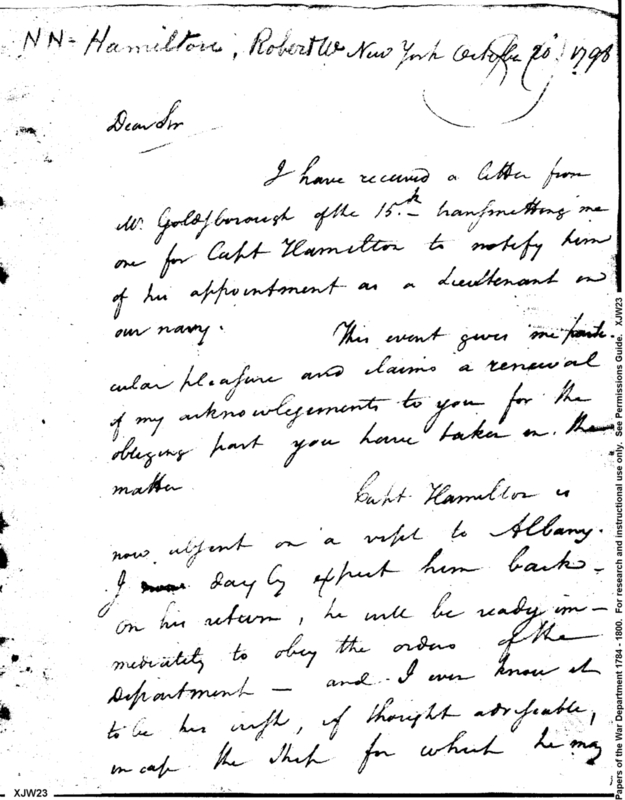 NN- Hamilton, Robert W New York October 20 1798
Dear Sir
I have received a letter from
Mr. Goldsborough of the 15.th transmitting me
one for Capt Hamilton to notify him
of his appointment as a Lieutenant in
our navy. This event gives me parti-
cular pleasure and claims a renewal
of my acknowlegements to you for the
obliging part you have taken in the
matter
Capt Hamilton is
now absent on a visit to Albany.
I day by expect him back-
On his return, he will be ready im-
mediately to obey the orders of the
Department — and I even know it
to be his wish, if thought adviseable,
in case the Ship for which he may
XJW23
Papers of the War Department 1784 - 1800. For research and instructional use only. See Permissions Guide. XJW23